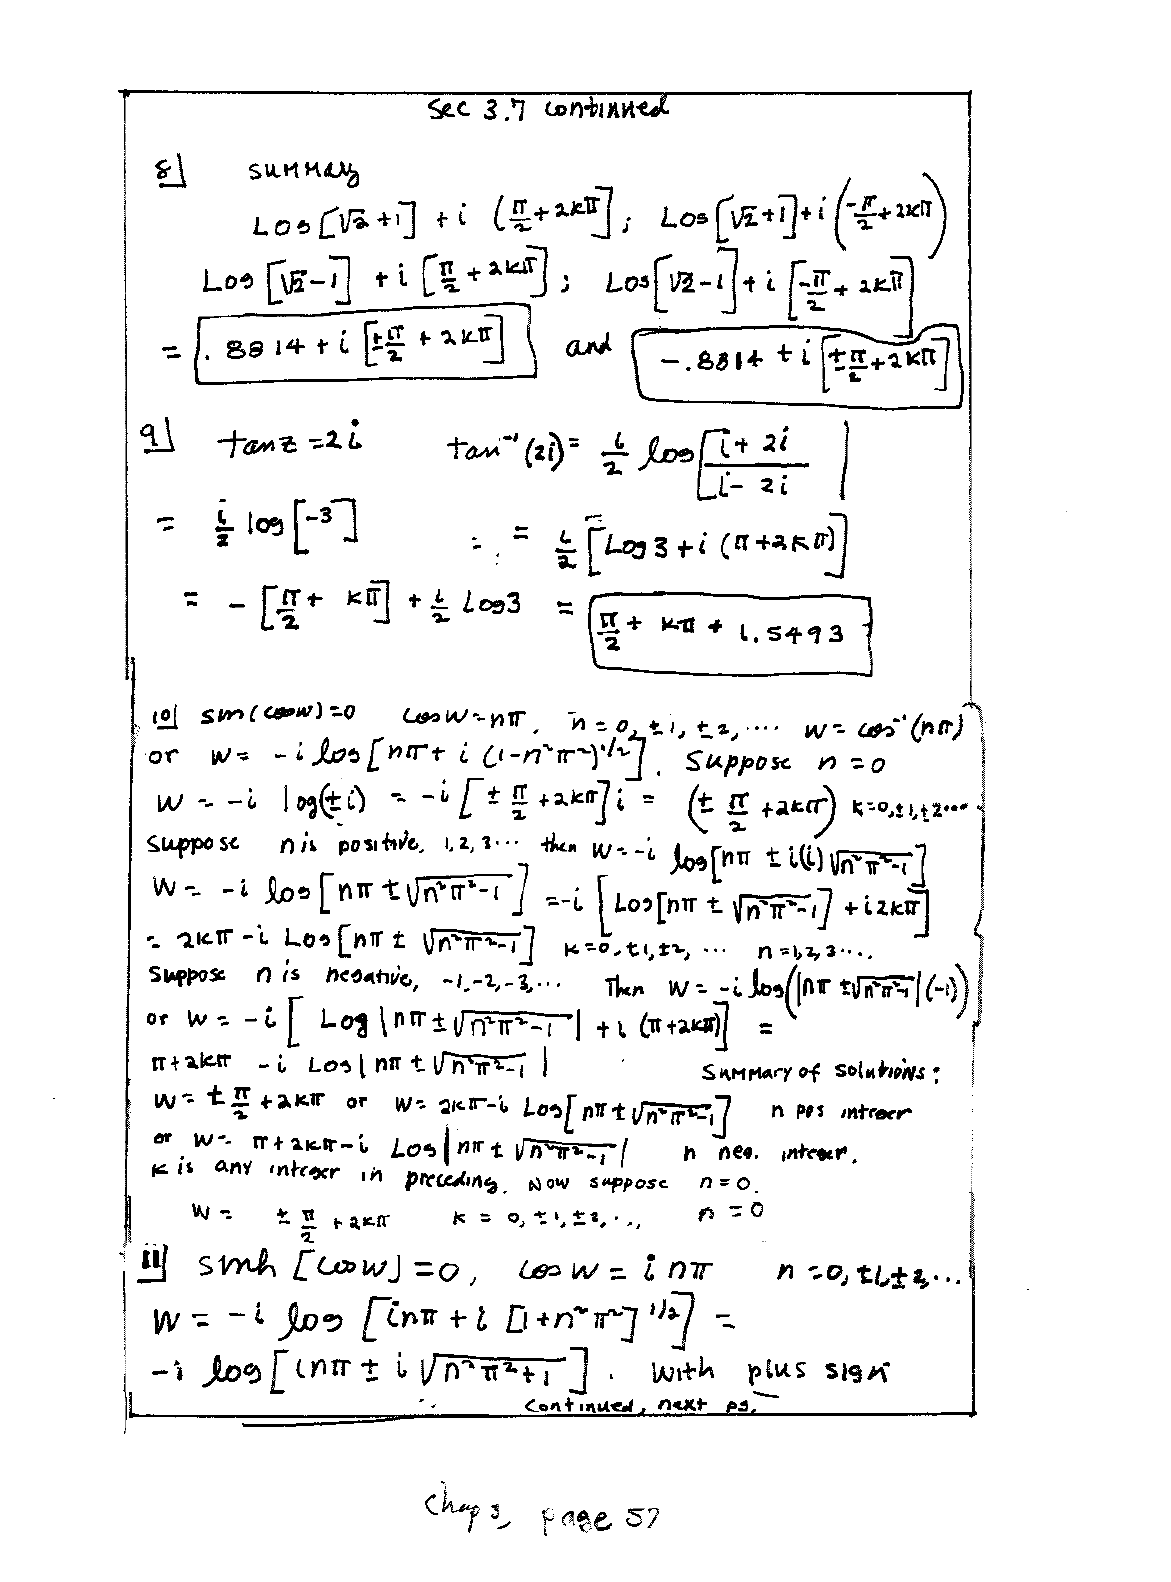 Sec 3.7 continued
8] summary
Log[√2+1] + i (π/2+2kπ]; Log[√2+1]+i(-π/2+2kπ)
Log[√2-1] + i[π/2+2kπ]; Log[√2-1]+i[-π/2+2kπ]
= .8814+i[±π/2+2kπ] and -.8814+i[±π/2+2kπ]
9] tanz=2i tan⁻¹(2i)= i/2 log[(i+2i)/(i-2i)]
= i/2 log[-3] = i/2 [Log3+i(π+2kπ)]
= -[π/2+kπ]+i/2 Log3 = π/2+kπ+1.5493
10] sin(cosw)=0 cosw=nπ, n=0,±1,±2,.... w=cos⁻¹(nπ)
or w= -i log[nπ+i(1-n²π²)^1/2]. Suppose n=0
w= -i log(±i) = -i[±π/2+2kπ]i = (±π/2+2kπ) k=0,±1,±2...
Suppose n is positive, 1,2,3... then w=-i log[nπ±i(i)√n²π²-1]
w= -i log[nπ±√n²π²-1] =-i[Log[nπ±√n²π²-1]+i2kπ]
= 2kπ-i Log[nπ±√n²π²-1] k=0,±1,±2, ... n=1,2,3....
Suppose n is negative, -1,-2,-3,... Then w=-i log(|nπ±√n²π²-1|(-1))
or w=-i[Log|nπ±√n²π²-1|+i(π+2kπ)] =
π+2kπ -i Log|nπ±√n²π²-1| Summary of solutions:
w=±π/2+2kπ or w=2kπ-i Log[nπ±√n²π²-1] n pos integer
or w= π+2kπ-i Log|nπ±√n²π²-1| n neg. integer.
k is any integer in preceding. Now suppose n=0.
w= ±π/2+2kπ k=0,±1,±2,.., n=0
11] sinh[cosw]=0, cosw=inπ n=0,±1,±2,...
w=-i log[inπ+i[1+n²π²]^1/2] =
-i log[inπ±i√n²π²+1]. With plus sign
continued, next pg.
Chap 3, page 57